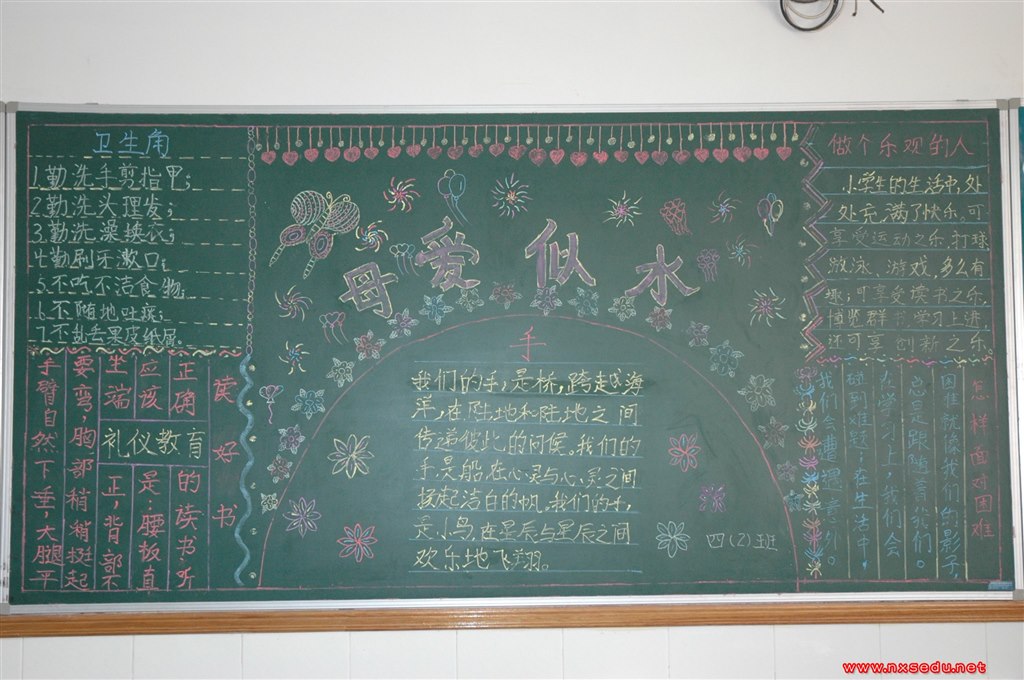 卫生角
1.勤洗手剪指甲;
2.勤洗头理发;
3.勤洗澡换衣;
4.勤刷牙漱口;
5.不吃不洁食物;
6.不随地吐痰;
7.不乱丢果皮纸屑。
读好书
正确
应该
坐端
要弯胸部稍稍挺起
手臂自然下垂,大腿平
礼仪教育
的读书听
是:腰板直
正,背部不
母爱似水
手
我们的手,是桥,跨越海
洋,在陆地和陆地之间
传递彼此的问候。我们的
手是船,在心灵与心灵之间
扬起洁白的帆。我们的手,
是小鸟,在星辰与星辰之间
欢乐地飞翔。
四(2)班
做个乐观的人
小学生的生活中,处
处充满了快乐。可
享受运动之乐,打球
游泳、游戏,多么有
趣;可享受读书之乐,
博览群书,学习上进,
还可享创新之乐。
怎样面对困难
困难就像我们的影子,
总是跟随着我们。
在学习上,我们会
碰到难题;在生活中,
我们会遭遇意外。
www.nxsedu.net